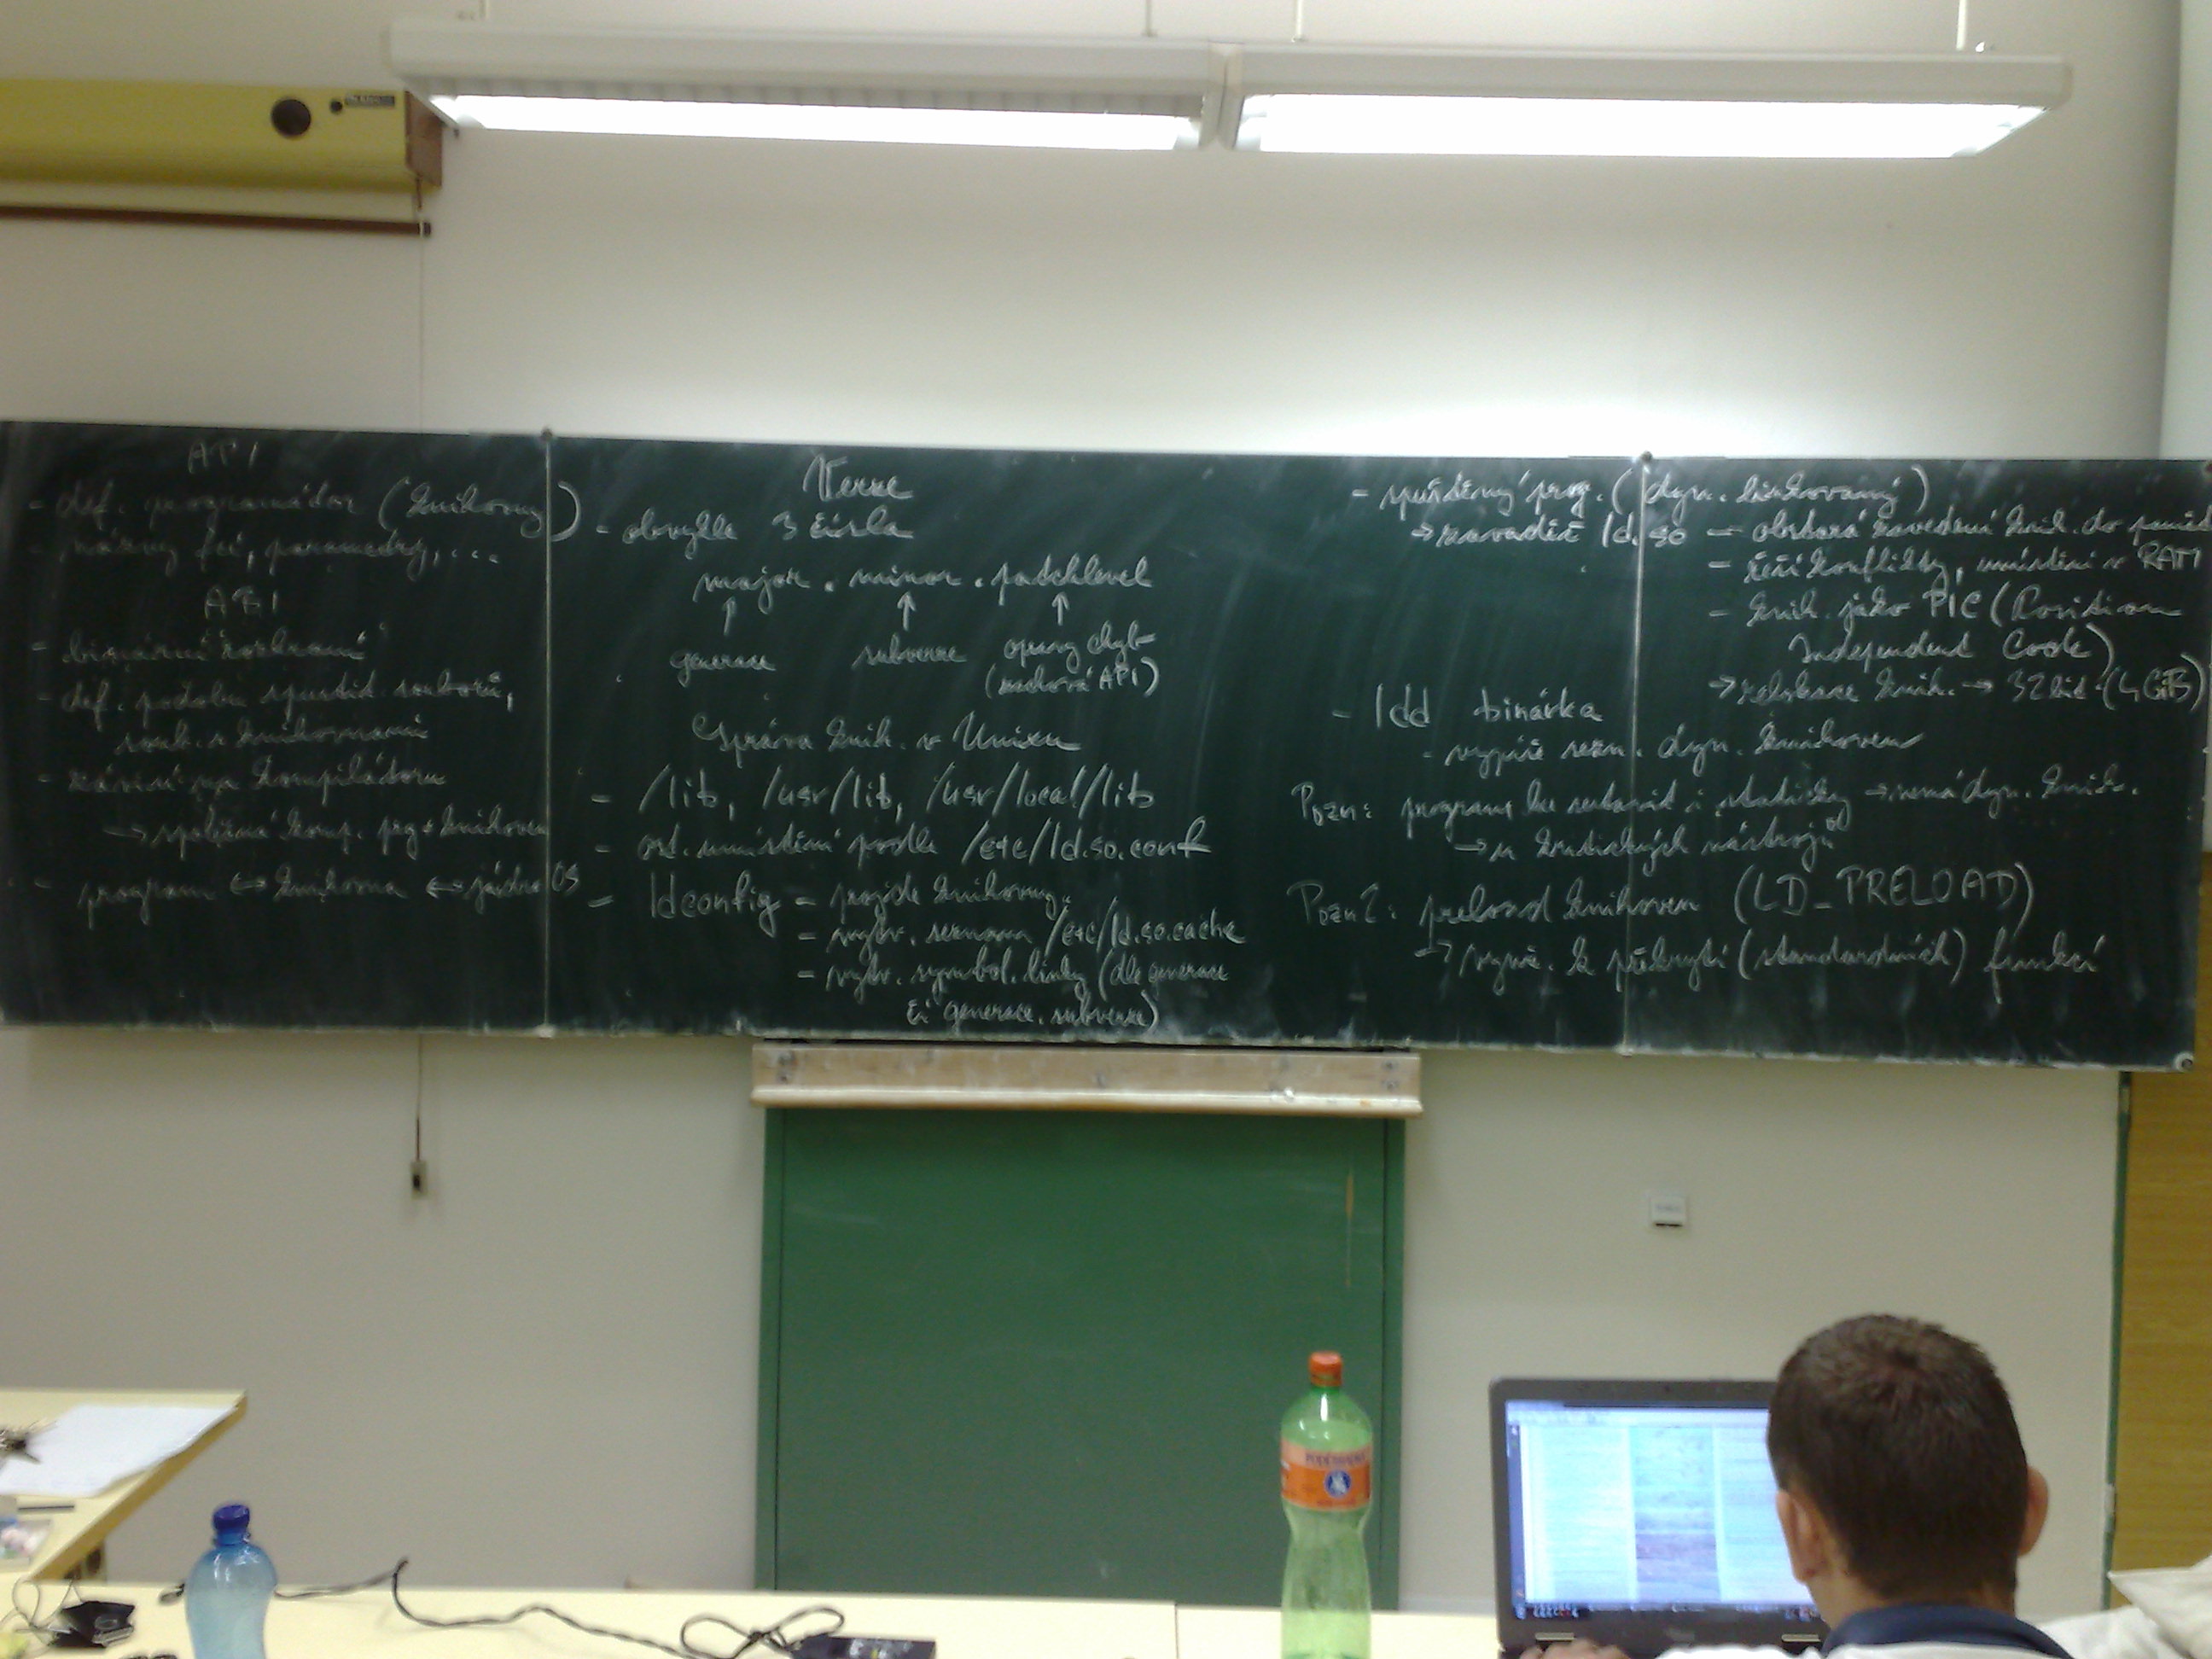 API
- def. programátor (knihovny)
- názvy fcí, parametry, ...
ABI
- binární rozhraní
- def. podobu spustit. souborů,
soub. s knihovnami
- závisí na kompilátoru
→ společná komp. prg + knihoven
- program ↔ knihovna ↔ jádro OS
Verze
- obvykle 3 čísla
major . minor . patchlevel
↑ ↑ ↑
generace subverze opravy chyb
(zachová API)
Správa knih. v Unixu
- /lib, /usr/lib, /usr/local/lib
- ost. umístění podle /etc/ld.so.conf
- ldconfig - projde knihovny
- vytv. seznam /etc/ld.so.cache
- vytv. symbol. linky (dle generace
či generace. subverze)
- spuštěný prog. (dyn. linkovaný)
→ zavaděč ld.so - obstará zavedení knih. do
- řeší konflikty, umístění v RAM
- knih. jako PIC (Position
Independent Code)
→ relokace knih. → 32bit (4GiB)
- ldd binárka
- vypíše sezn. dyn. knihoven
Pozn: program lze sestavit i staticky → nemá dyn. knih.
→ u kritických nástrojů
Pozn2: preload knihoven (LD_PRELOAD)
→ k překrytí (standardních) funkcí
PODĚBRADKA